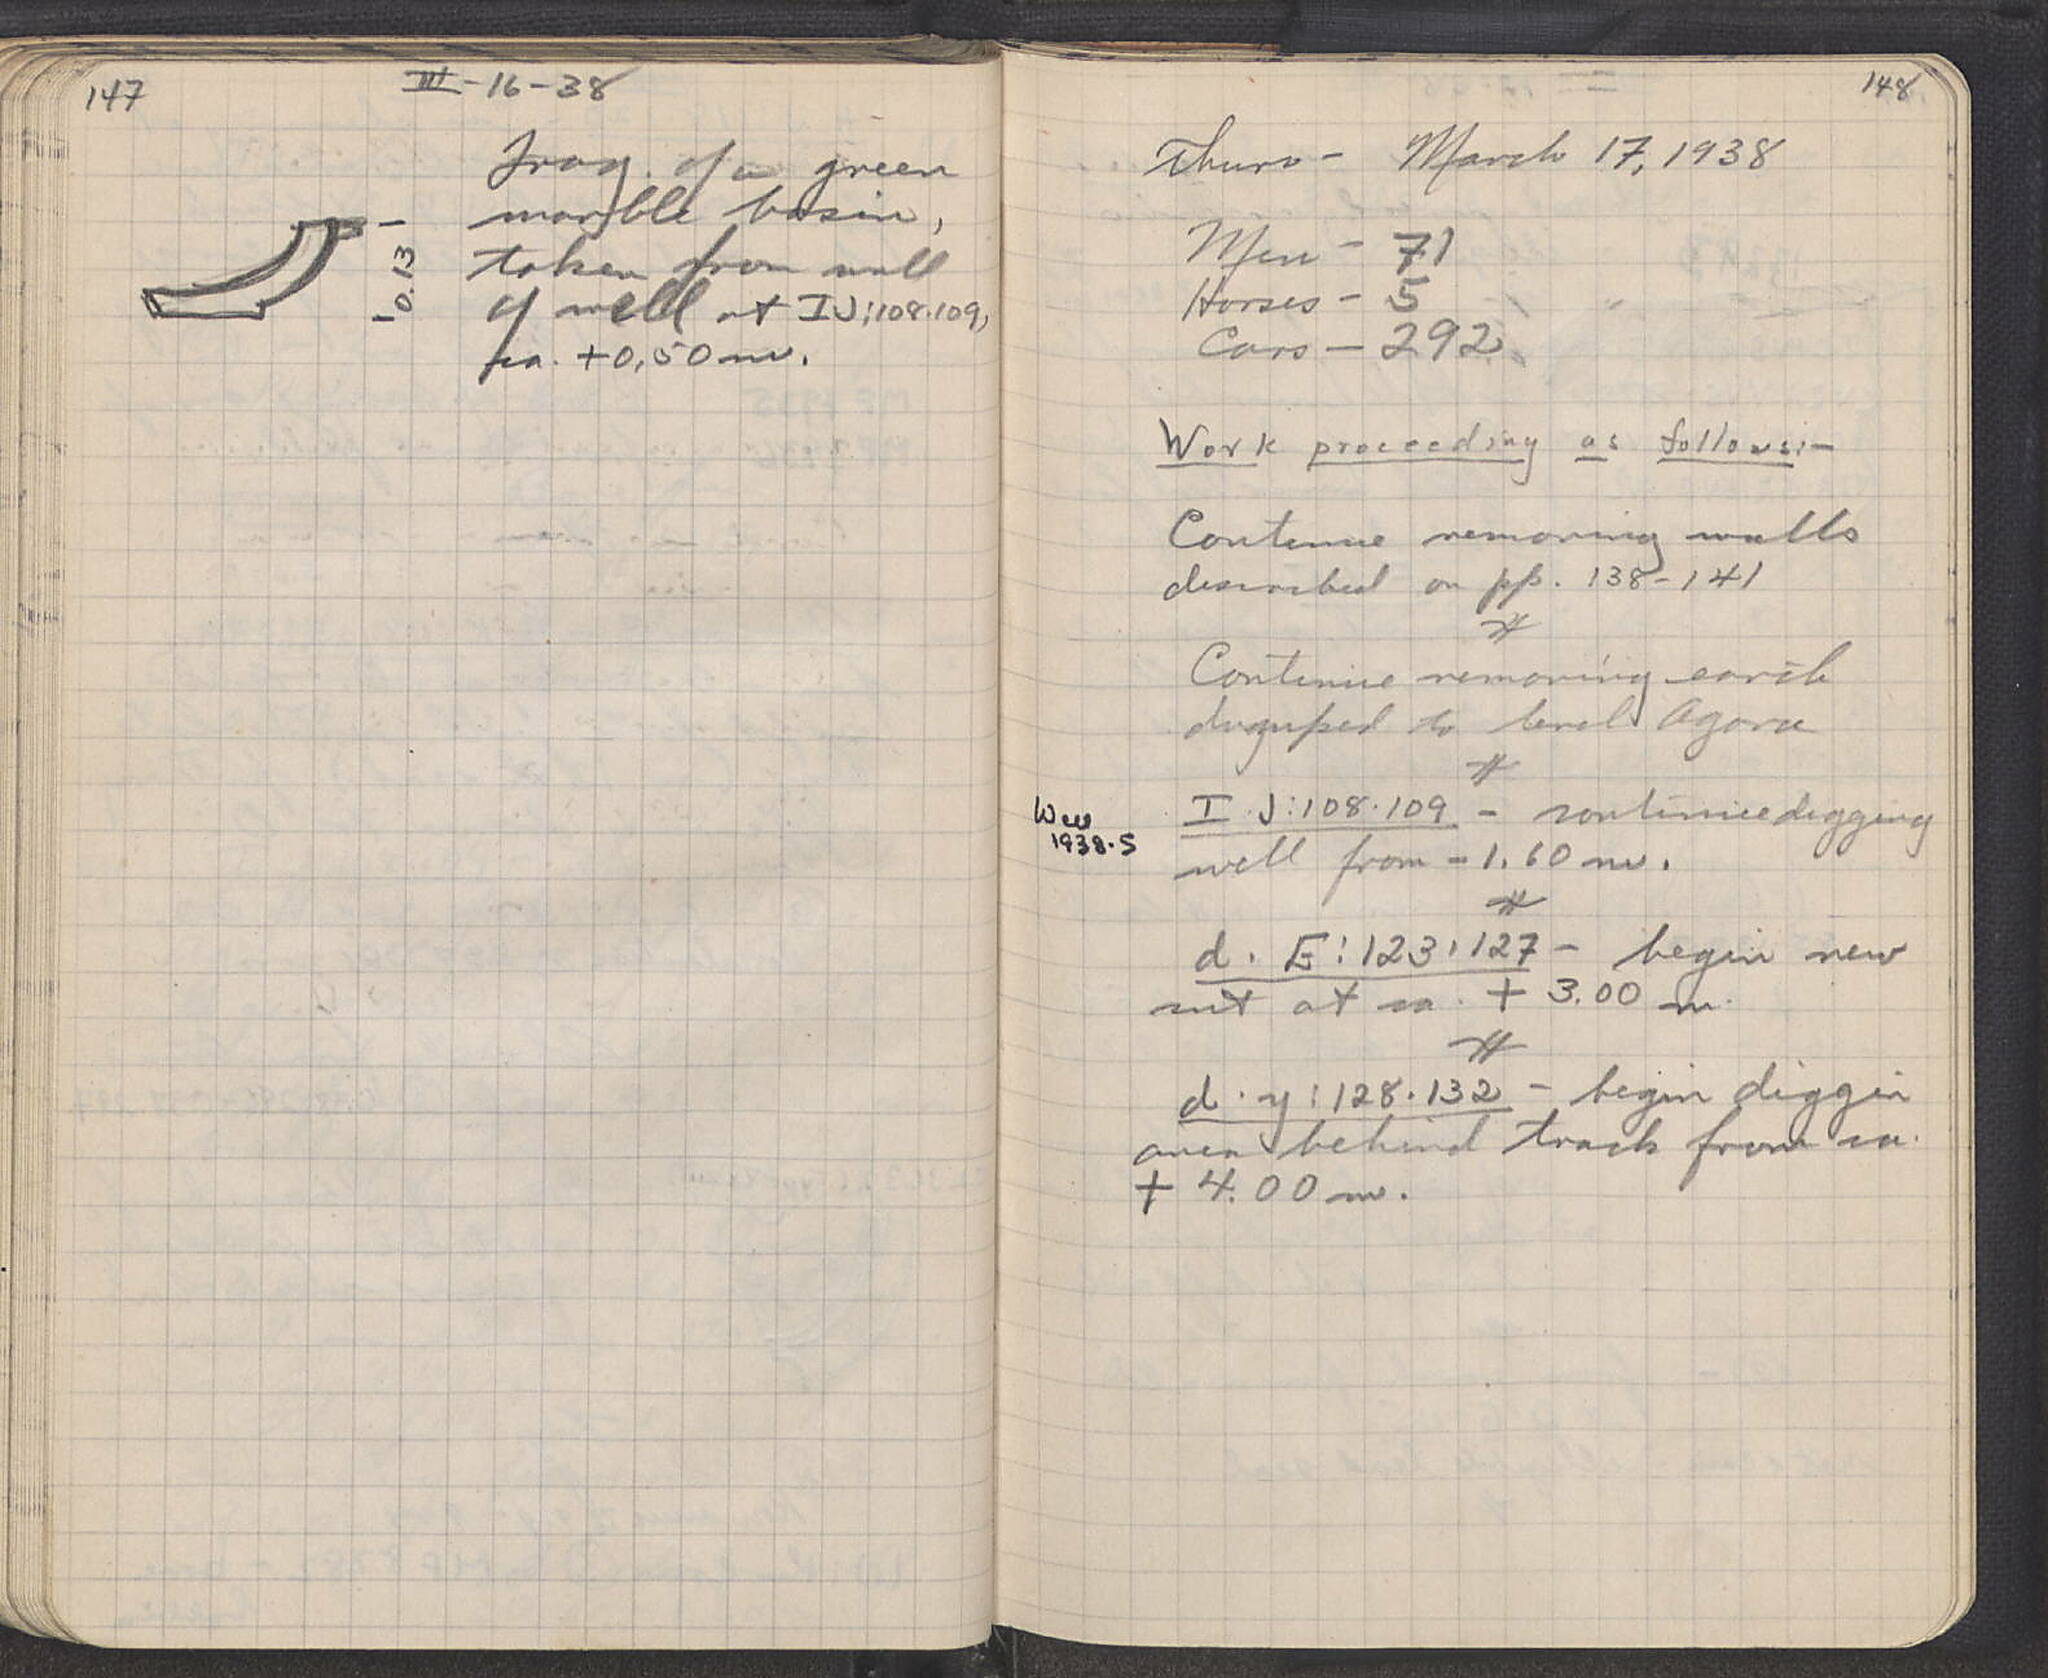 147
III-16-38
frag. of a green
marble basin,
taken from wall
of well at IJ:108.109,
ca. +0,50 m.
0.13
148
Thurs - March 17, 1938
Men - 71
Horses - 5
Cars - 292
Work proceeding as follows:-
Continue removing walls
described on pp. 138-141
Continue removing earth
dumped to level Agora
Well
1938-S
I J:108.109 - continue digging
well from -1.60 m.
d. E:123.127 - begin new
cut at ca. + 3.00 m.
d.y:128.132 - begin diggin
area behind track from ca.
+ 4.00 m.